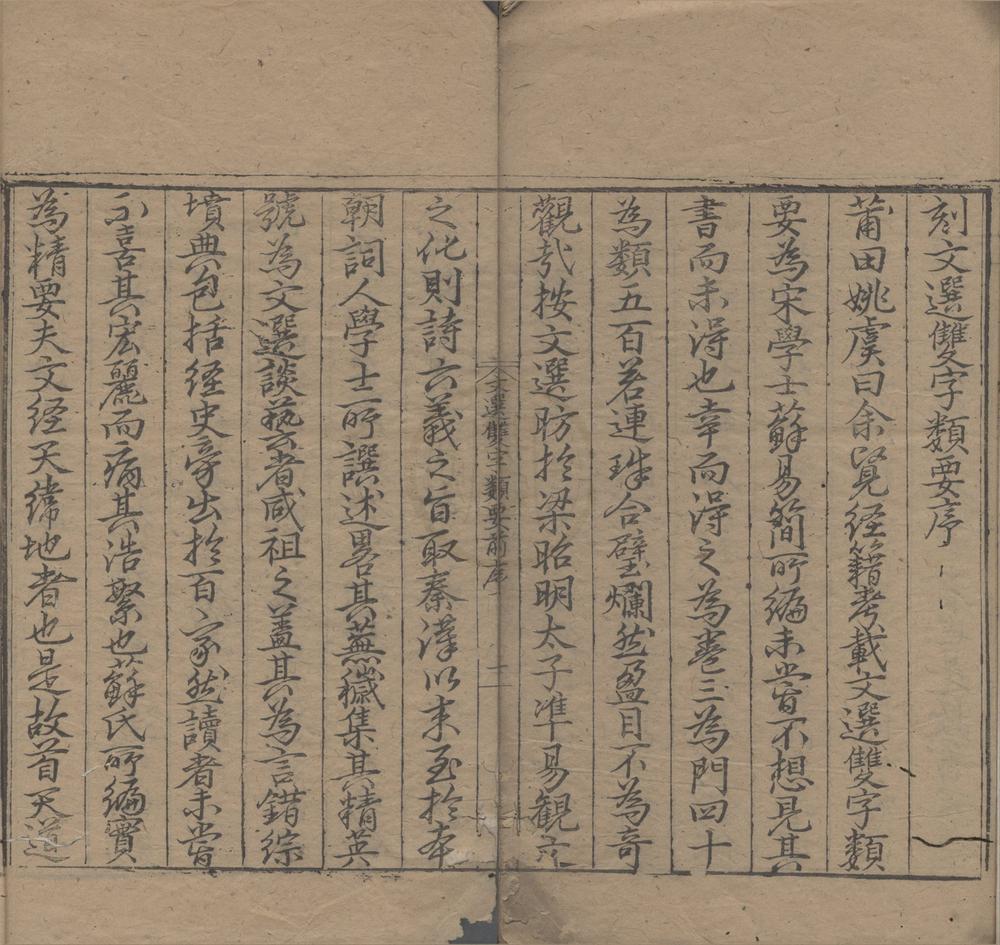 刻文選雙字類要序
莆田姚虞曰余覽経籍考載文選雙字類
要為宋學士蘇易簡所編未嘗不想見其
書而未淂也幸而淂之為卷三為門四十
為類五百若連珠合璧爛然盈目不為奇
觀㢤按文選昉扵梁昭明太子準易觀
文選雙字類要前序
之化則詩六義之旨取秦漢以来至扵本
朝詞人學士所譔述畧其蕪穢集其精英
號為文選談藝者咸祖之盖其為言錯綜
墳典包括経史旁出扵百家然讀者未嘗
不喜其宏麗而病其浩繁也蘇氏所編實
為精要夫文経天緯地者也是故首天道